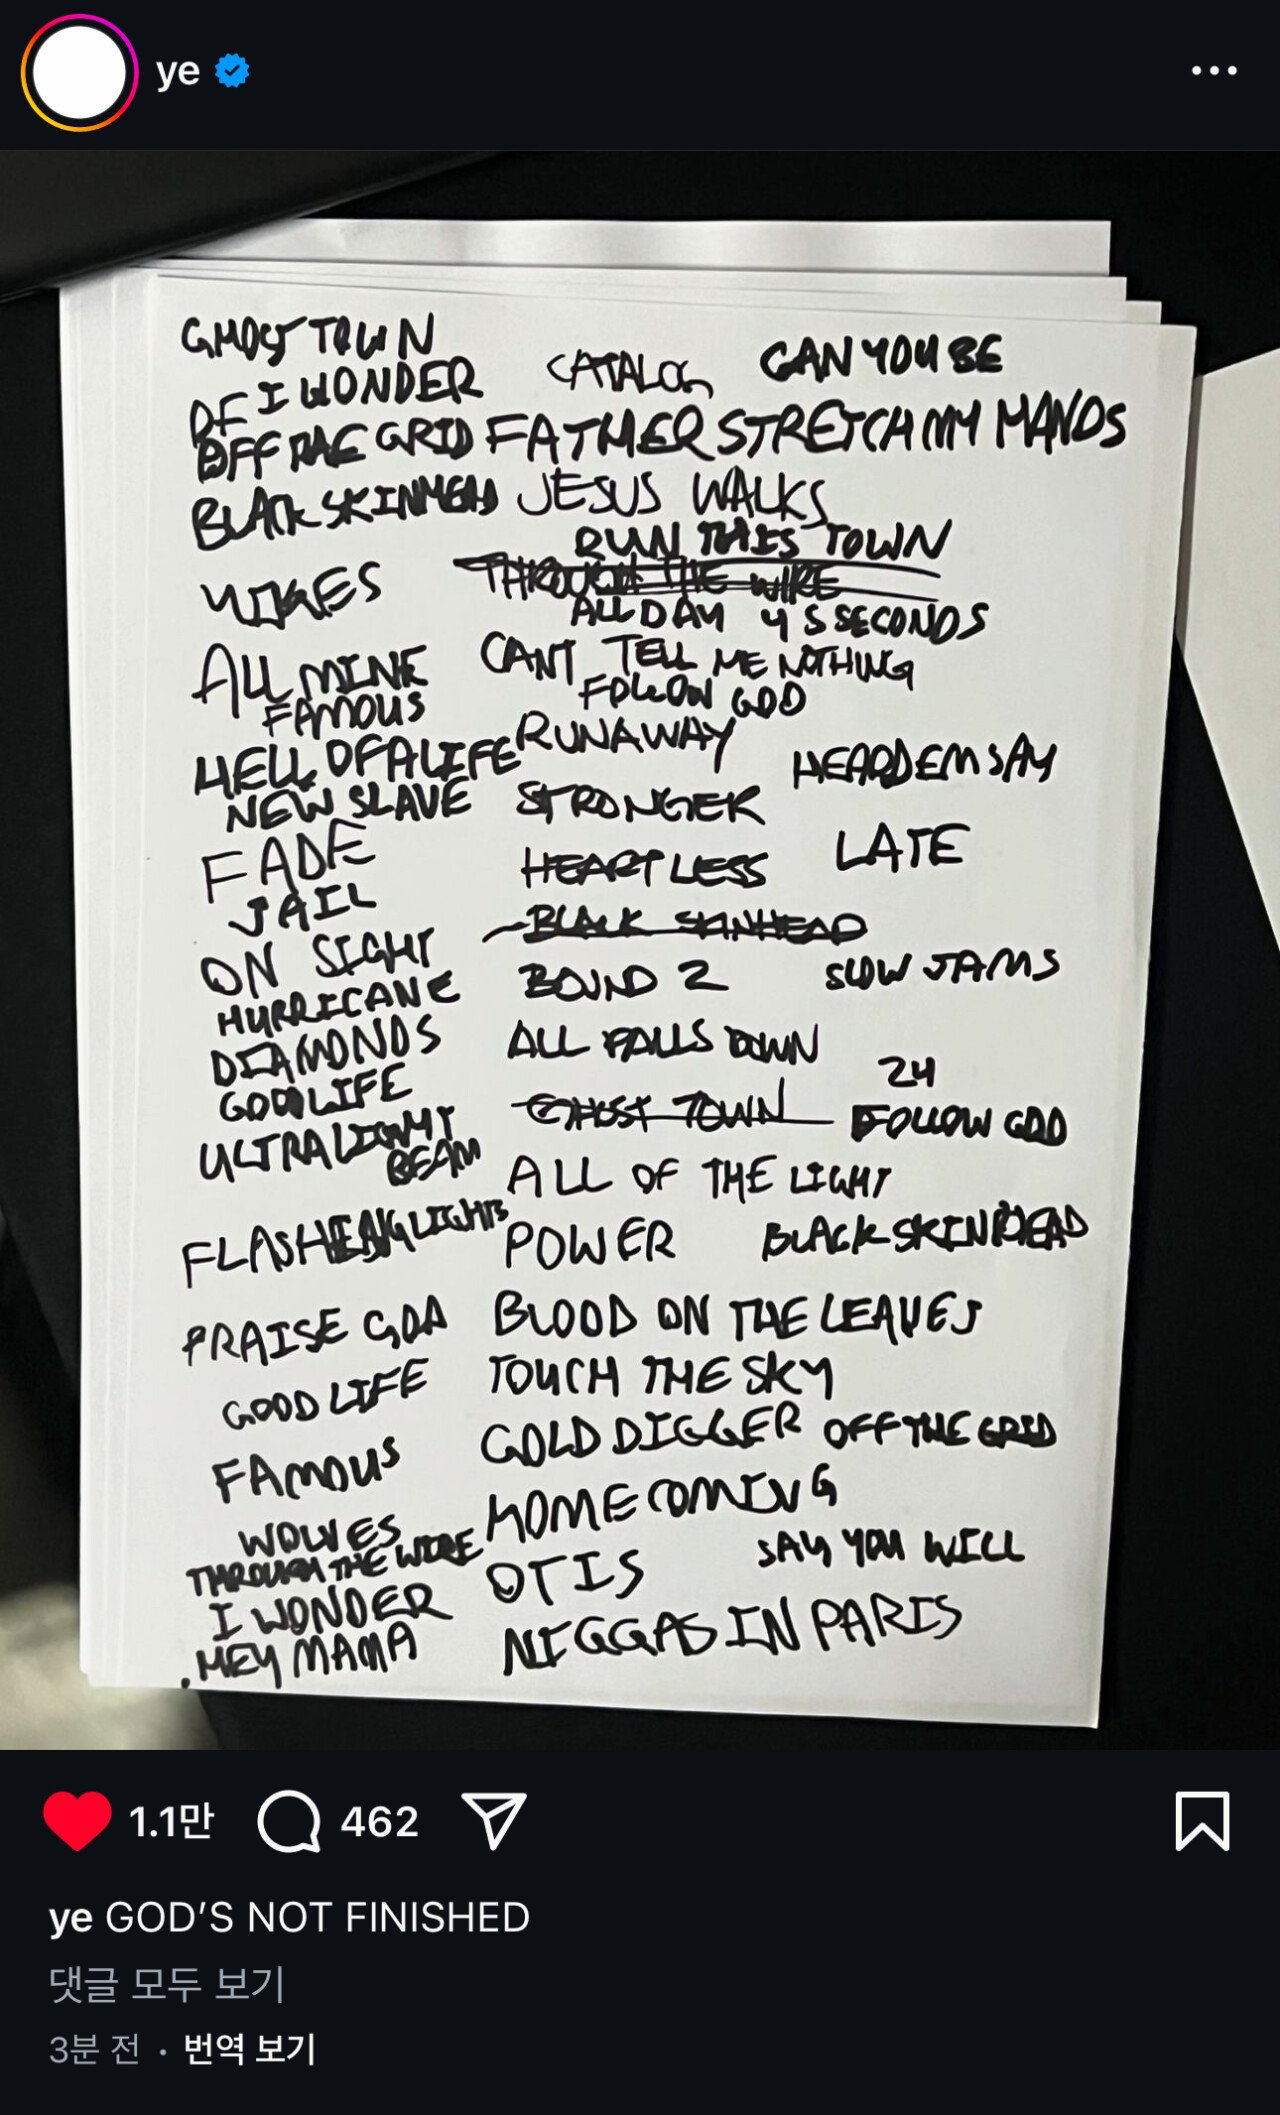 ye
GHOST TOWN
OF I WONDER
CATALOG
CAN YOU BE
OFF THE GRID
FATHER STRETCH MY HANDS
BLACKSKINHEAD
JESUS WALKS
RUN THIS TOWN
THROUGH THE WIRE
YIKES
ALL DAY 4 5 SECONDS
ALL MINE
CANT TELL ME NOTHING
FAMOUS
FOLLOW GOD
HELL OF A LIFE
RUNAWAY
HEARDEMSAY
NEW SLAVE
STRONGER
FADE
HEARTLESS
LATE
JAIL
BLACK SKINHEAD
ON SIGHT
BOUND 2
SLOW JAMS
HURRICANE
DIAMONDS
ALL FALLS DOWN
GOODLIFE
24
GHOST TOWN
FOLLOW GOD
ULTRALIGHT
BEAM
ALL OF THE LIGHT
FLASHING LIGHTS
POWER
BLACKSKINHEAD
PRAISE GOD
BLOOD ON THE LEAVES
GOOD LIFE
TOUCH THE SKY
FAMOUS
GOLD DIGGER
OFF THE GRID
WOLVES
HOMECOMING
THROUGH THE WIRE
OTIS
SAY YOU WILL
I WONDER
NIGGAS IN PARIS
HEY MAMA
1.1만
462
ye GOD’S NOT FINISHED
댓글 모두 보기
3분 전 · 번역 보기